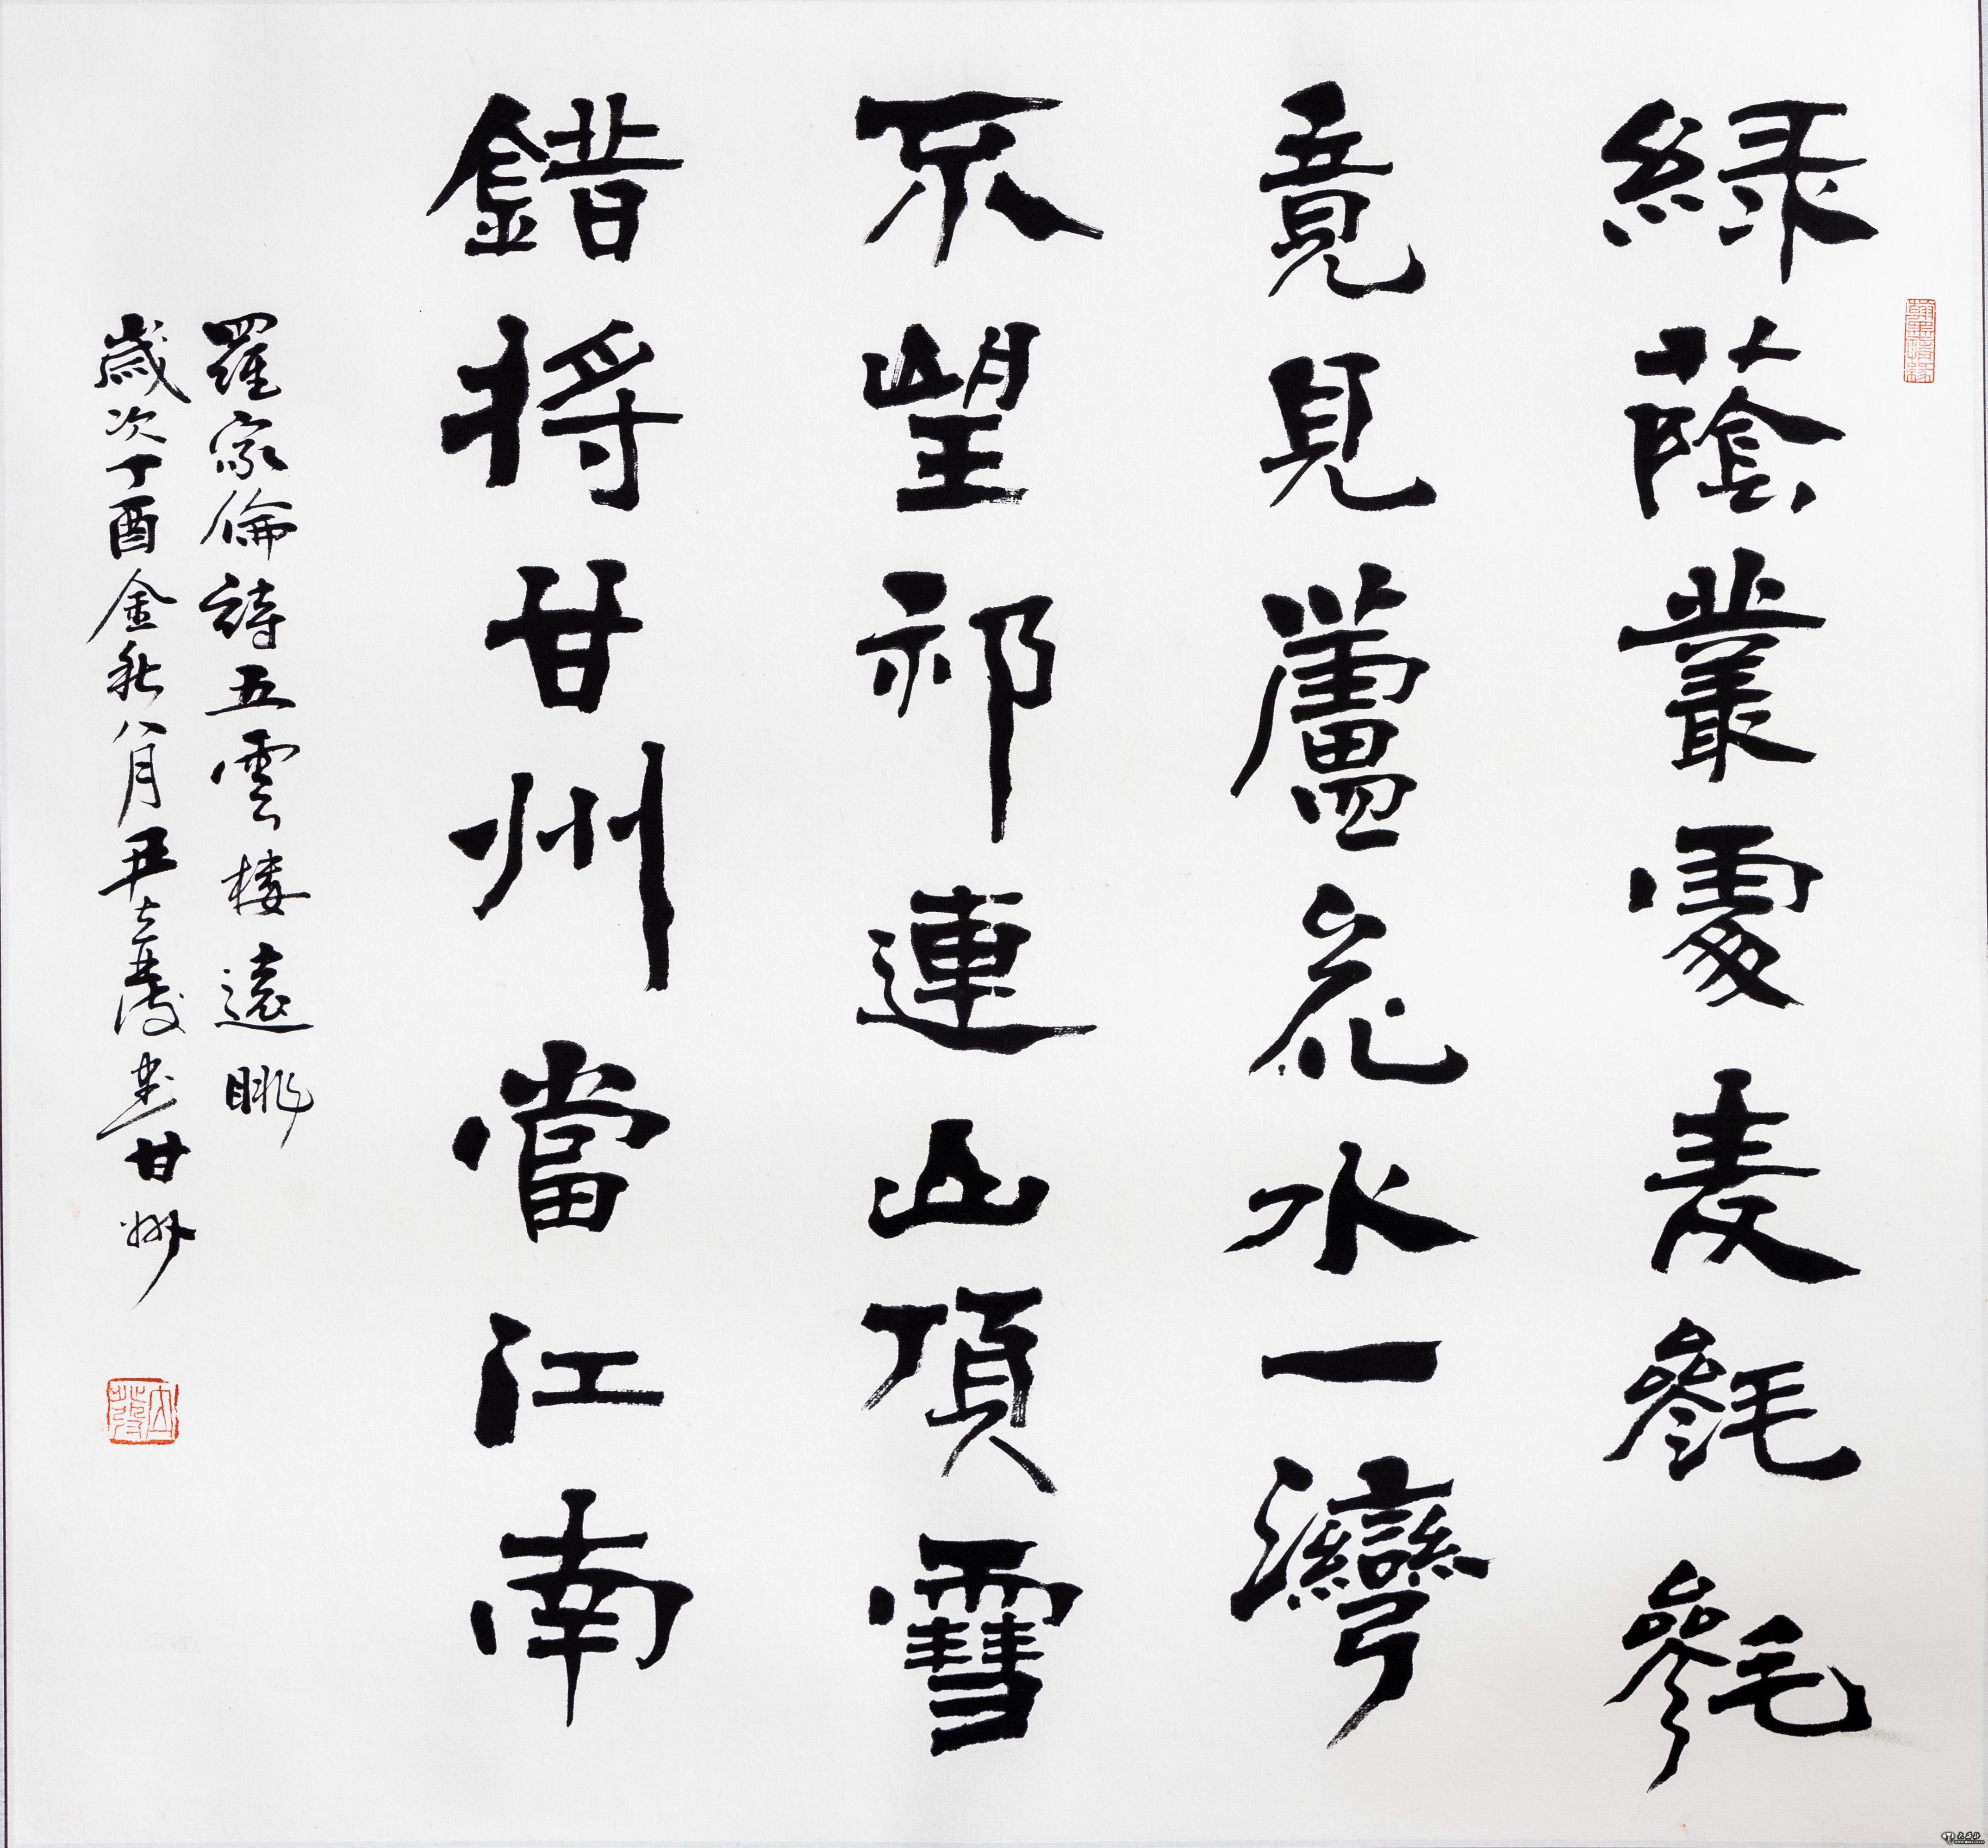 翰墨結緣
綠蔭叢麥毿毿
竟見蘆花水一灣
不望祁連山頂雪
錯將甘州當江南
羅家倫詩五雲樓遠眺
歲次丁酉金秋八月書甘州